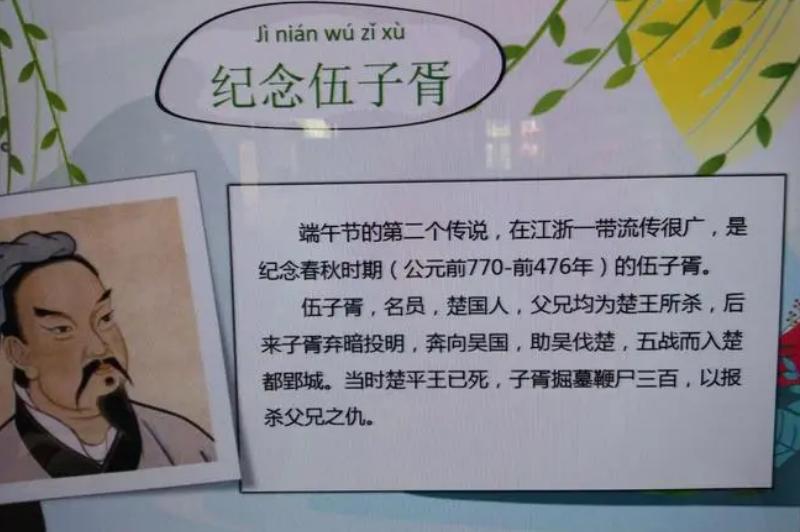 Jì nián wú zǐ xù
纪念伍子胥
端午节的第二个传说，在江浙一带流传很广，是
纪念春秋时期（公元前770-前476年）的伍子胥。
伍子胥，名员，楚国人，父兄均为楚王所杀，后
来子胥弃暗投明，奔向吴国，助吴伐楚，五战而入楚
都郢城。当时楚平王已死，子胥掘墓鞭尸三百，以报
杀父兄之仇。